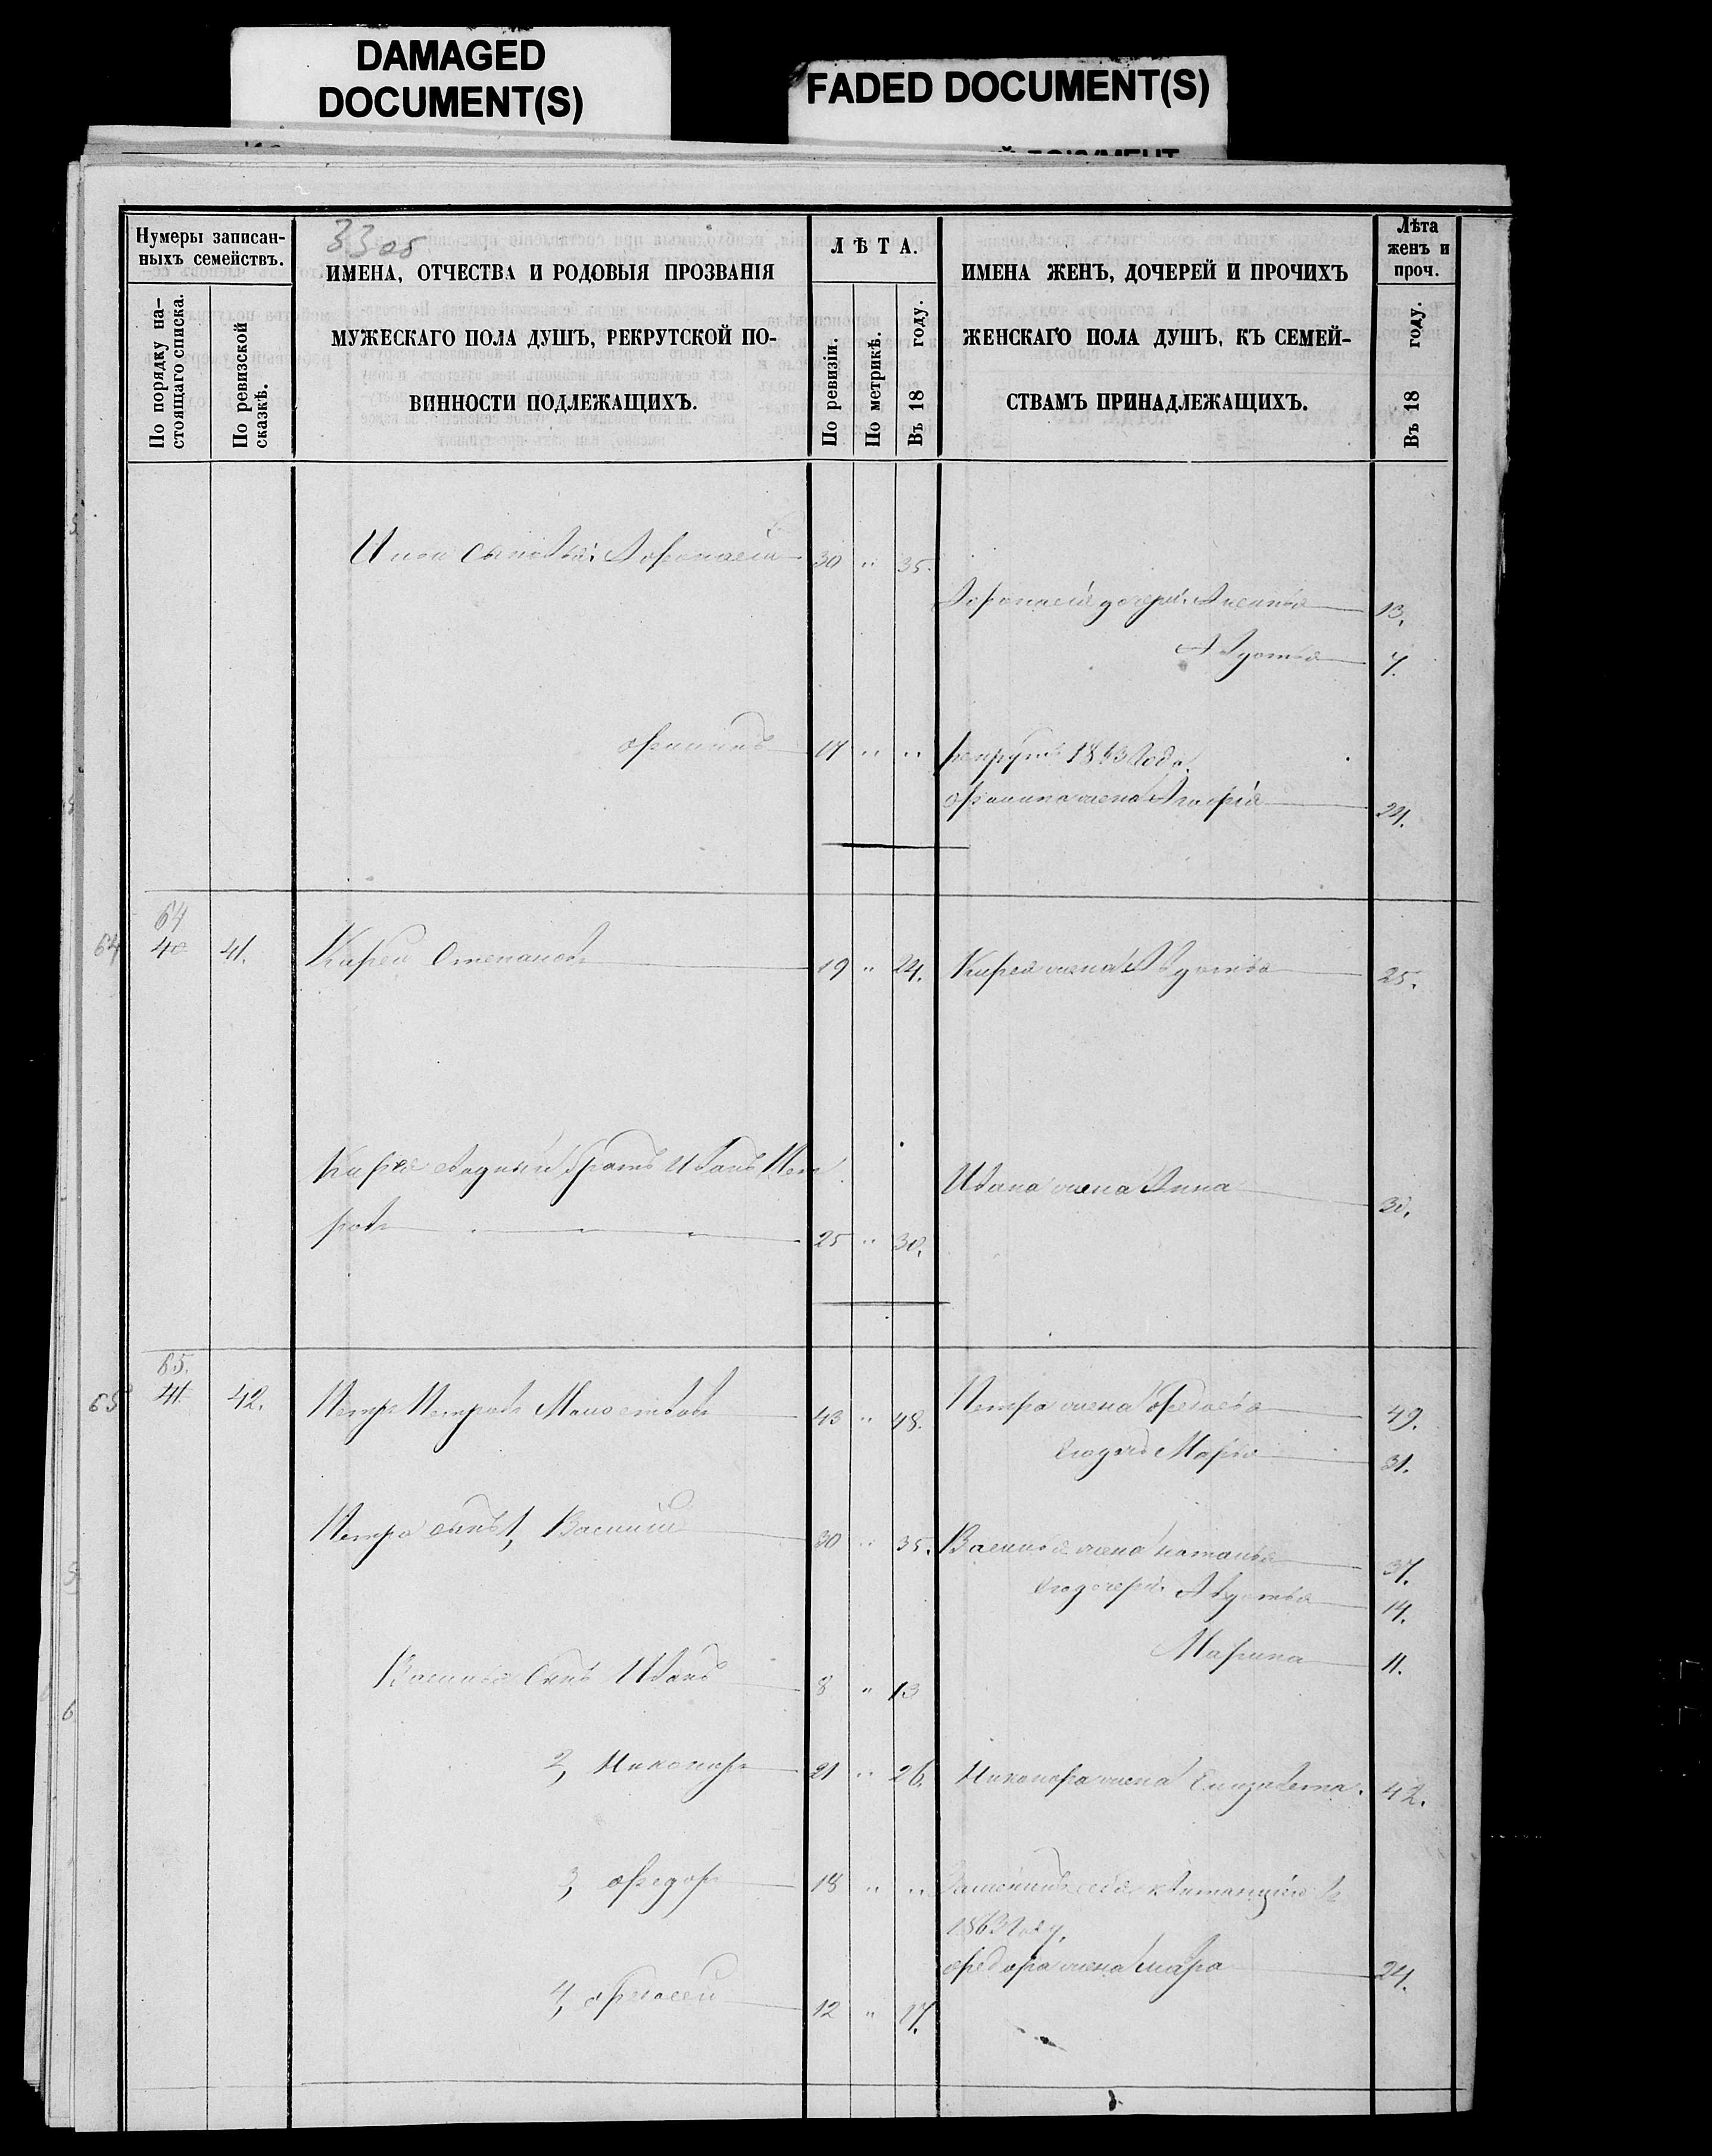 DAMAGED
DOCUMENT(S)
FADED DOCUMENT(S)
33 об
Нумеры записан-
ныхъ семействъ.
По порядку на-
стоящаго списка.
По ревизской
сказкѣ.
ИМЕНА, ОТЧЕСТВА И РОДОВЫЯ ПРОЗВАНІЯ
МУЖЕСКАГО ПОЛА ДУШЪ, РЕКРУТСКОЙ ПО-
ВИННОСТИ ПОДЛЕЖАЩИХЪ.
ЛѢТА.
По ревизіи.
По метрикѣ.
Въ 18 году.
ИМЕНА ЖЕНЪ, ДОЧЕРЕЙ И ПРОЧИХЪ
ЖЕНСКАГО ПОЛА ДУШЪ, КЪ СЕМЕЙ-
СТВАМЪ ПРИНАДЛЕЖАЩИХЪ.
Лѣта
женъ и
проч.
Въ 18 году.
сыновья: Афонасій 30 " 35.
Афонасія дочери: Аненья 13.
Авдотья 7.
Филипъ 17 " "
рекрутъ 1863 года.
Филипа жена Агафія 24.
64
64 40 41. Кирей Степановъ 19 " 24. Кирея жена Авдотья 25.
Кирея сводный братъ Иванъ Пет
ровъ 25 " 30.
Ивана жена Анна 30.
65.
65 41 42. Петръ Петровъ 43 " 48. Петра жена Федосья 49.
Его дочь Марья 31.
Петра сынъ 1, Василій 30 " 35. Василья жена Наталья 37.
Его дочери: Авдотья 14.
Марина 11.
Василья сынъ Иванъ 8 " 13
2, Никоноръ 21 " 26. Никонора жена Елизавета. 42.
3, Федоръ 18 " " квитанціей въ
1863 году.
Федора жена 24.
4, Федосей 12 " 17.